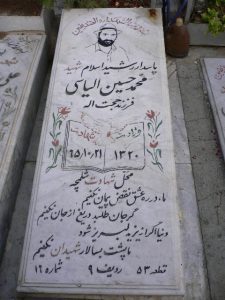 پاسدار رشید اسلام شهید
محمدحسین الیاسی
فرزند حجت اله
ولادت شهادت
۱۳۴۰ ۶۵/۱۰/۲۱
محل شهادت شلمچه
ما در ره عشق نقض پیمان نکنیم
گر جان طلبد دریغ از جان نکنیم
دنیا اگر از یزید لبریز شود
ما پشت به سالار شهیدان نکنیم
قطعه ۵۳ ردیف ۹ شماره ۱۶